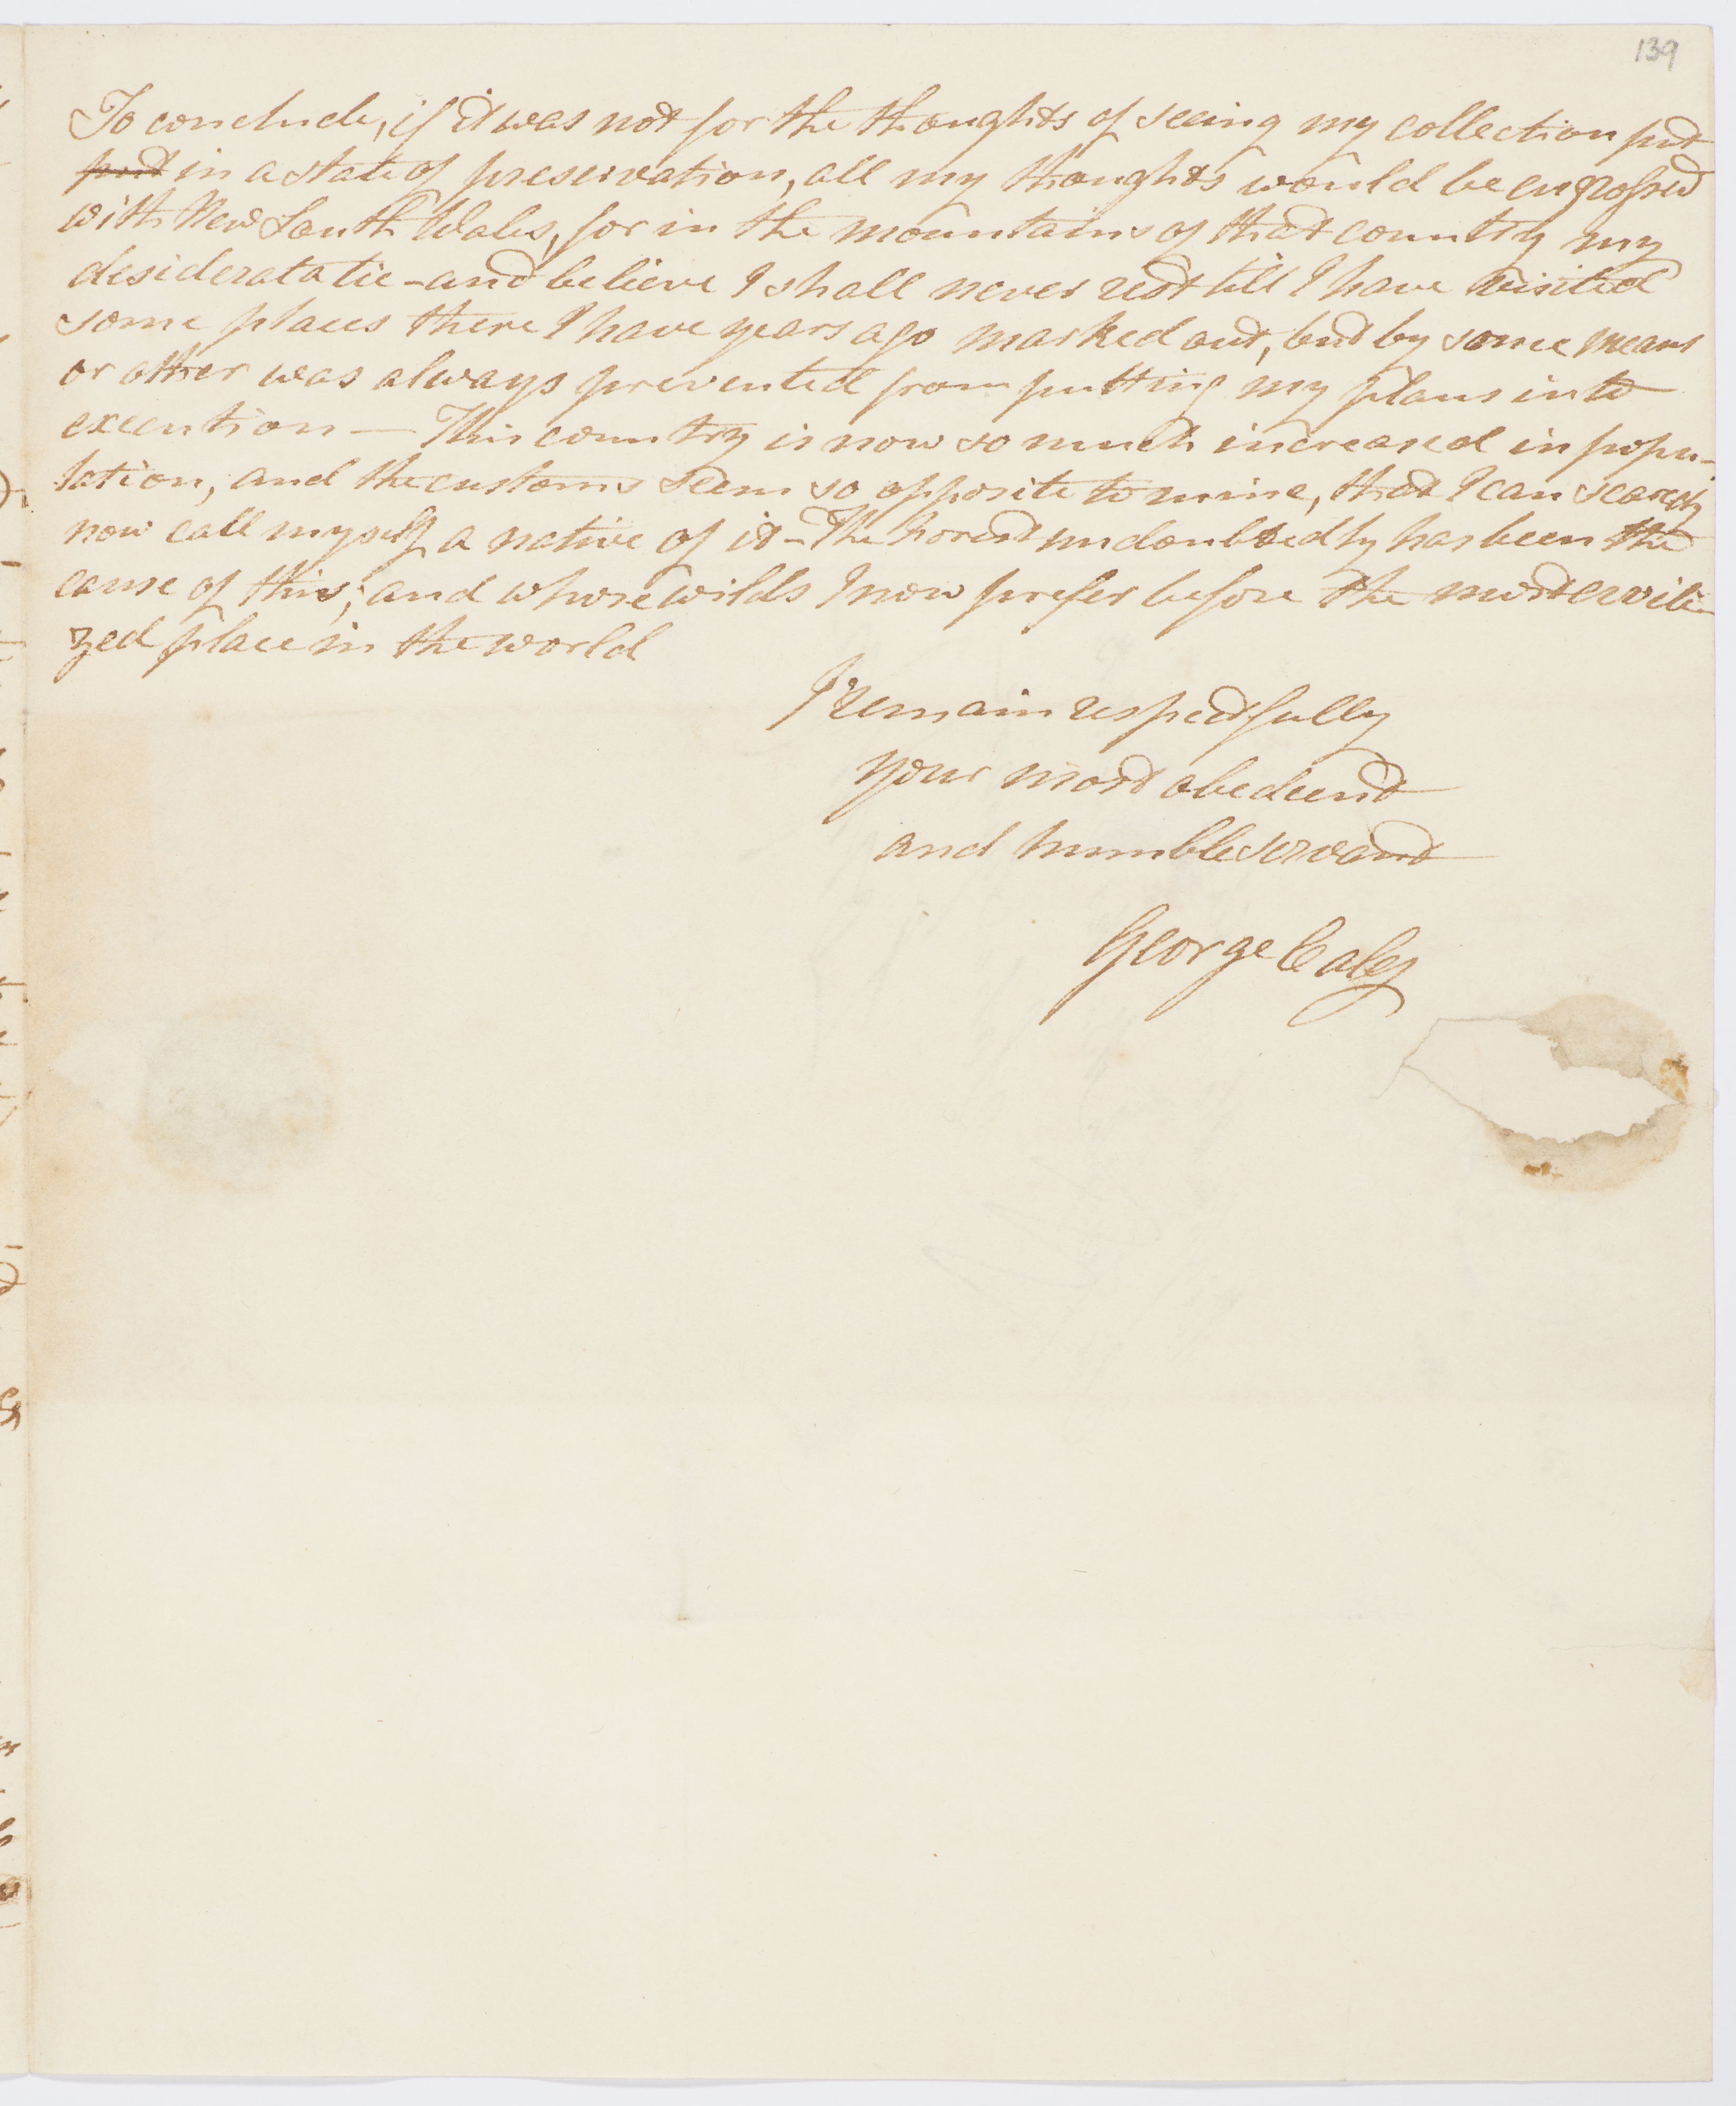 139
To conclude, if it was not for the thoughts of seeing my collection put
put in a state of preservation, all my thoughts would be engrossed
with New South Wales, for in the mountains of that country my
desiderata lie - and believe I shall never rest till I have visited
some places there I have years ago marked out, but by some means
or other was always prevented from putting my plans into
execution — This country is now so much increased in popu-
lation, and the customs seem so opposite to mine, that I can scarcely
now call myself a native of it - The forest undoubtedly has been the
cause of this; and whose wilds I now prefer before the most civili-
zed place in the world
I remain respectfully
your most obedient
and humble servant
George Caley